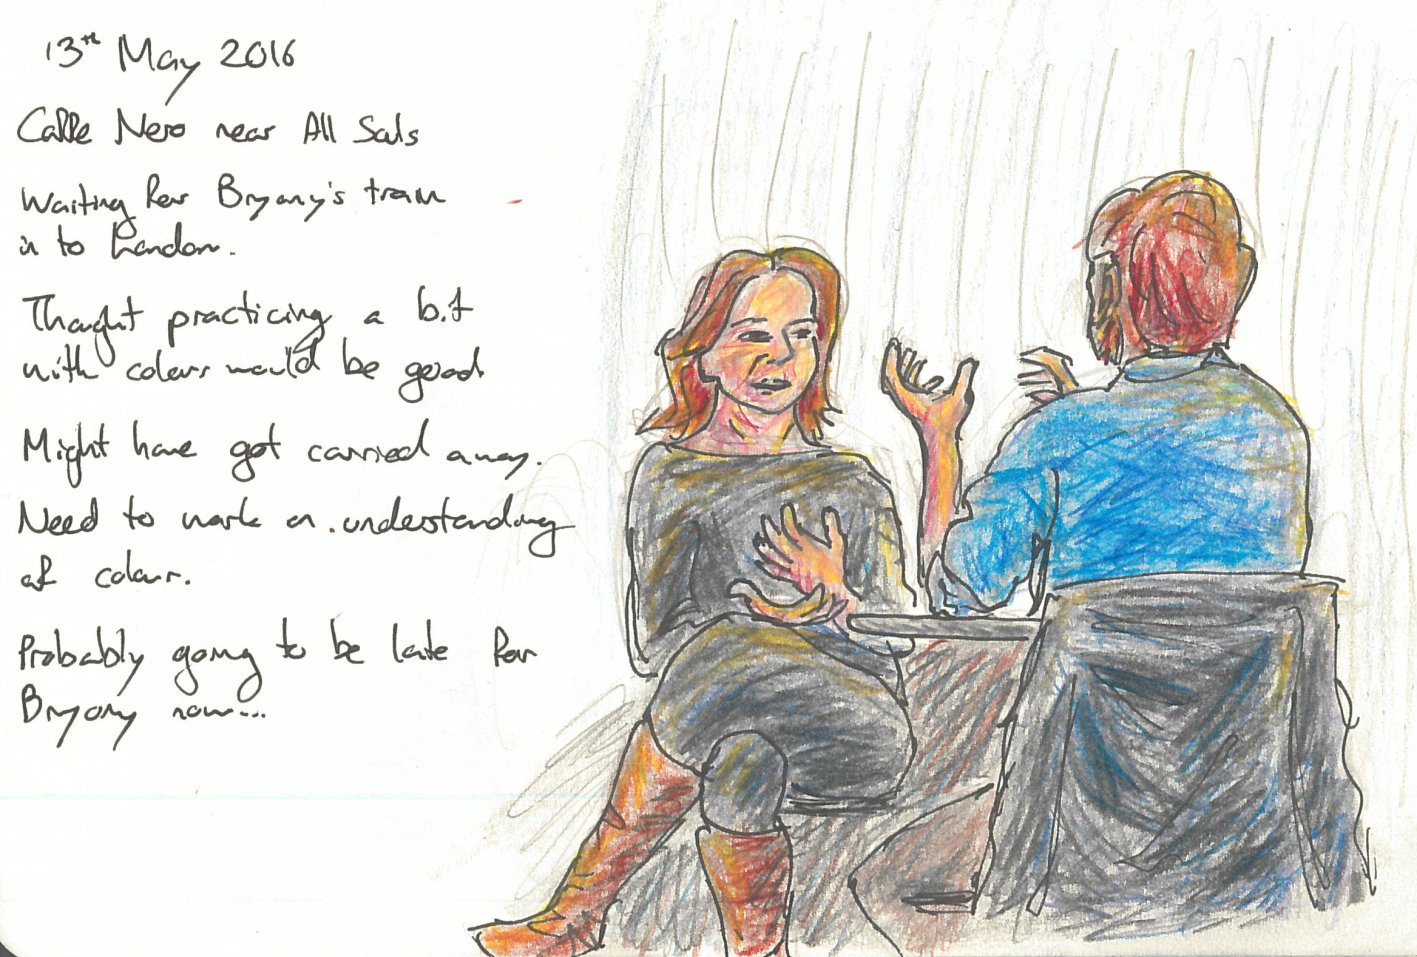 13th May 2016
Caffe Nero near All Souls
Waiting for Bryony's train
in to London.
Thought practicing a bit
with colours would be good
Might have got carried away.
Need to work on understanding
of colour.
Probably going to be late for
Bryony now...